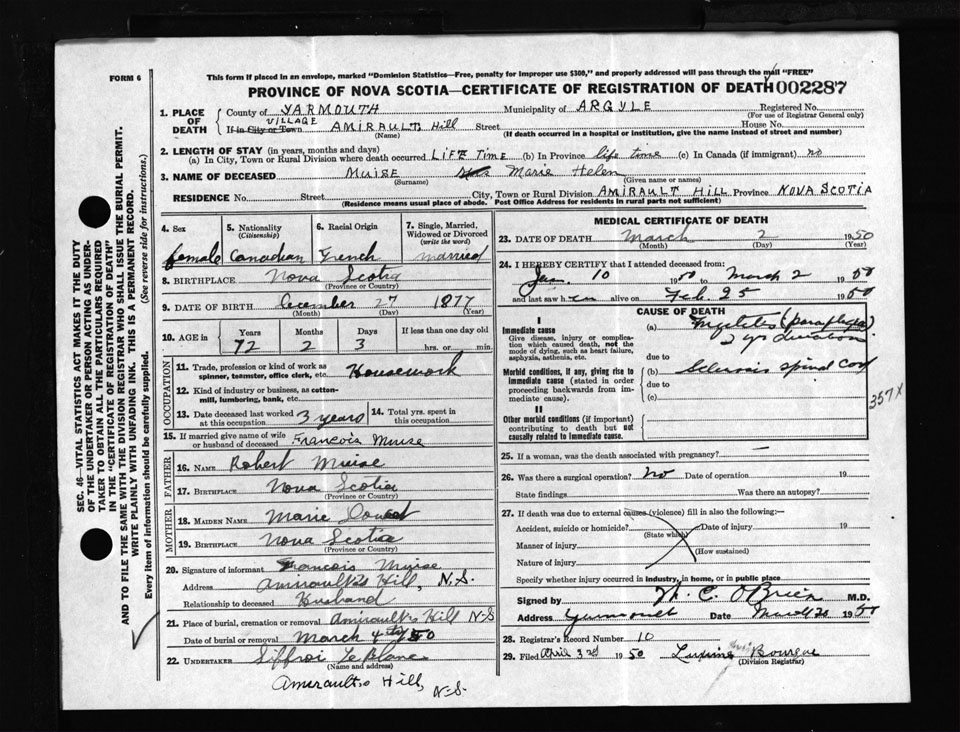 FORM 6
This form if placed in an envelope, marked "Dominion Statistics—Free, penalty for improper use $300," and properly addressed will pass through the mail "FREE"
PROVINCE OF NOVA SCOTIA—CERTIFICATE OF REGISTRATION OF DEATH 002287
1. PLACE OF DEATH County of YARMOUTH Municipality of ARGYLE Registered No.
(For use of Registrar General only)
VILLAGE
If in City or Town AMIRAULT Hill Street House No.
(Name) (If death occurred in a hospital or institution, give the name instead of street and number)
2. LENGTH OF STAY (in years, months and days)
(a) In City, Town or Rural Division where death occurred LIFE TIME (b) In Province life time (c) In Canada (if immigrant) no
3. NAME OF DECEASED MUISE Marie Helen
(Surname) (Given name or names)
RESIDENCE No. Street City, Town or Rural Division AMIRAULT HILL Province NOVA SCOTIA
(Residence means usual place of abode. Post Office Address for residents in rural parts not sufficient)
4. Sex 5. Nationality (Citizenship) 6. Racial Origin 7. Single, Married, Widowed or Divorced (write the word)
female Canadian French married
8. BIRTHPLACE Nova Scotia
(Province or Country)
9. DATE OF BIRTH December 27 1877
(Month) (Day) (Year)
10. AGE in Years Months Days If less than one day old
72 2 3 hrs. or min.
OCCUPATION
11. Trade, profession or kind of work as spinner, teamster, office clerk, etc. Housework
12. Kind of industry or business, as cotton-mill, lumbering, bank, etc.
13. Date deceased last worked at this occupation 3 years 14. Total yrs. spent in this occupation
15. If married give name of wife or husband of deceased Francois Muise
FATHER
16. NAME Robert Muise
17. BIRTHPLACE Nova Scotia
(Province or Country)
MOTHER
18. MAIDEN NAME Marie Doucet
19. BIRTHPLACE Nova Scotia
(Province or Country)
20. Signature of informant Francois Muise
Address Amirault's Hill, N.S.
Relationship to deceased Husband
21. Place of burial, cremation or removal Amirault's Hill N-S
Date of burial or removal March 4th 1950
22. UNDERTAKER Siffroi LeBlanc
(Name and address)
Amirault's Hill, N-S.
MEDICAL CERTIFICATE OF DEATH
23. DATE OF DEATH March 2 1950
(Month) (Day) (Year)
24. I HEREBY CERTIFY that I attended deceased from:
Jan. 10 1950 to March 2 1950
and last saw her alive on Feb. 25 1950
CAUSE OF DEATH
I
Immediate cause
Give disease, injury or complication which caused death, not the mode of dying, such as heart failure, asphyxia, asthenia, etc.
(a) Myelitis (paraplegia)
2 yrs duration
due to
Morbid conditions, if any, giving rise to immediate cause (stated in order proceeding backwards from immediate cause).
(b) Sclerosis spinal cord
due to
(c)
357X
II
Other morbid conditions (if important) contributing to death but not causally related to immediate cause.
25. If a woman, was the death associated with pregnancy? —
26. Was there a surgical operation? No Date of operation 19
State findings Was there an autopsy?
27. If death was due to external causes (violence) fill in also the following:—
Accident, suicide or homicide? Date of injury 19
(State which)
Manner of injury
(How sustained)
Nature of injury
Specify whether injury occurred in industry, in home, or in public place
Signed by M. C. O'Brien M.D.
Address Date March 20 1950
28. Registrar's Record Number 10
29. Filed April 3rd 1950 Bourque
(Division Registrar)
SEC. 46—VITAL STATISTICS ACT MAKES IT THE DUTY
OF THE UNDERTAKER OR PERSON ACTING AS UNDER-
TAKER TO OBTAIN ALL THE PARTICULARS REQUIRED
IN THE "CERTIFICATE OF REGISTRATION OF DEATH"
AND TO FILE THE SAME WITH THE DIVISION REGISTRAR WHO SHALL ISSUE THE BURIAL PERMIT.
WRITE PLAINLY WITH UNFADING INK. THIS IS A PERMANENT RECORD.
Every item of information should be carefully supplied. (See reverse side for instructions.)